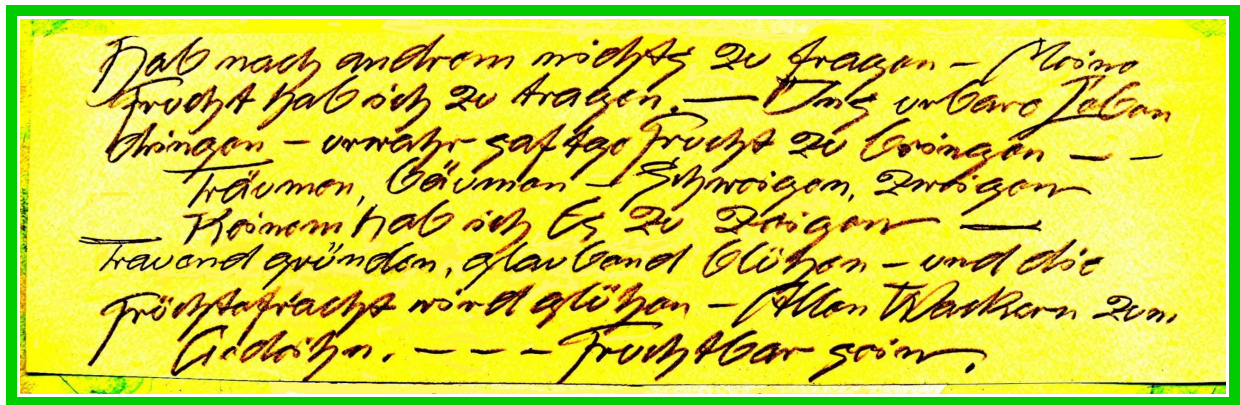 Hab nach andrem nichts zu fragen – Meine
Frucht hab ich zu tragen. — Ins urbare Leben
dringen – urwahr saftge Frucht zu bringen – –
Träumen, bäumen – Schweigen, zweigen
Keinem hab ich Es zu zeigen —
Trauend gründen, glaubend blühen – und die
Früchtefracht wird glühen – Allen Wackern zum
Gedeihn. – – – Fruchtbar sein.